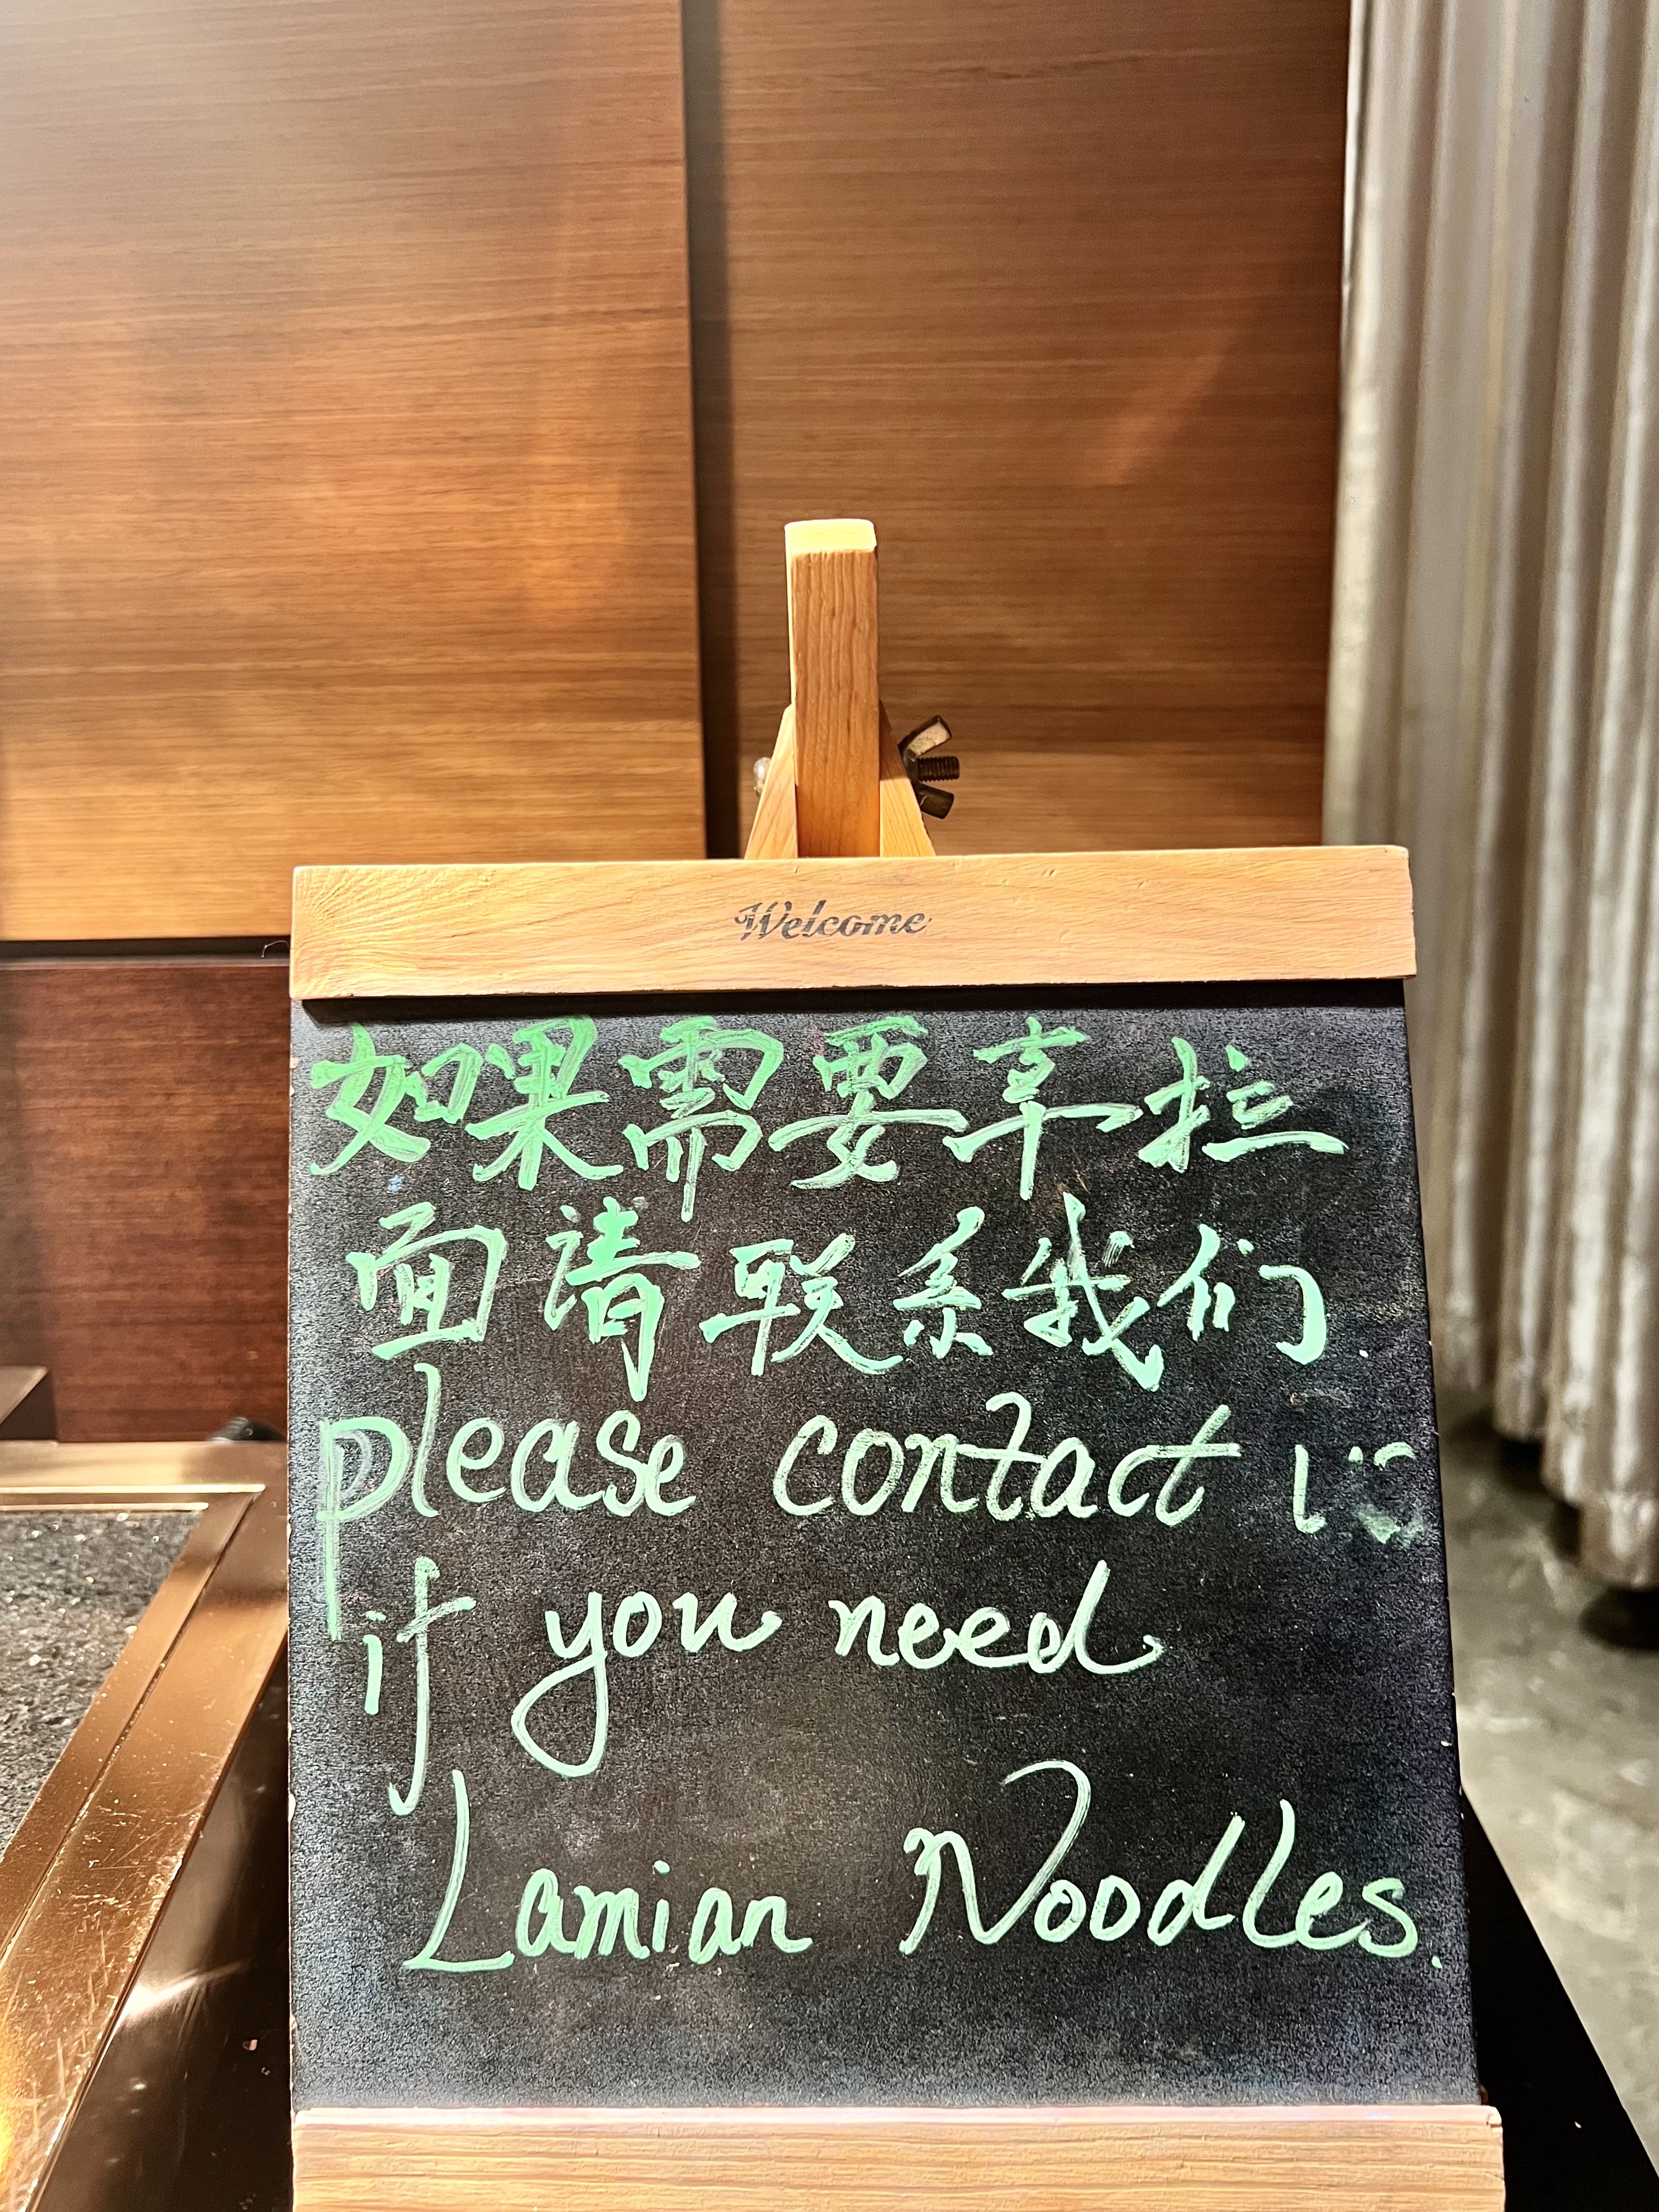 Welcome
如果需要享拉
面请联系我们
please contact
if you need
Lamian Noodles.